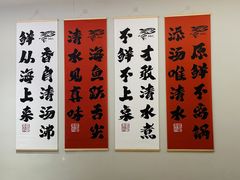 鲜从海上来
香自清汤沸
清水见真味
海鱼跃舌尖
不鲜不上桌
才敢清水煮
添汤唯清水
原鲜不离锅